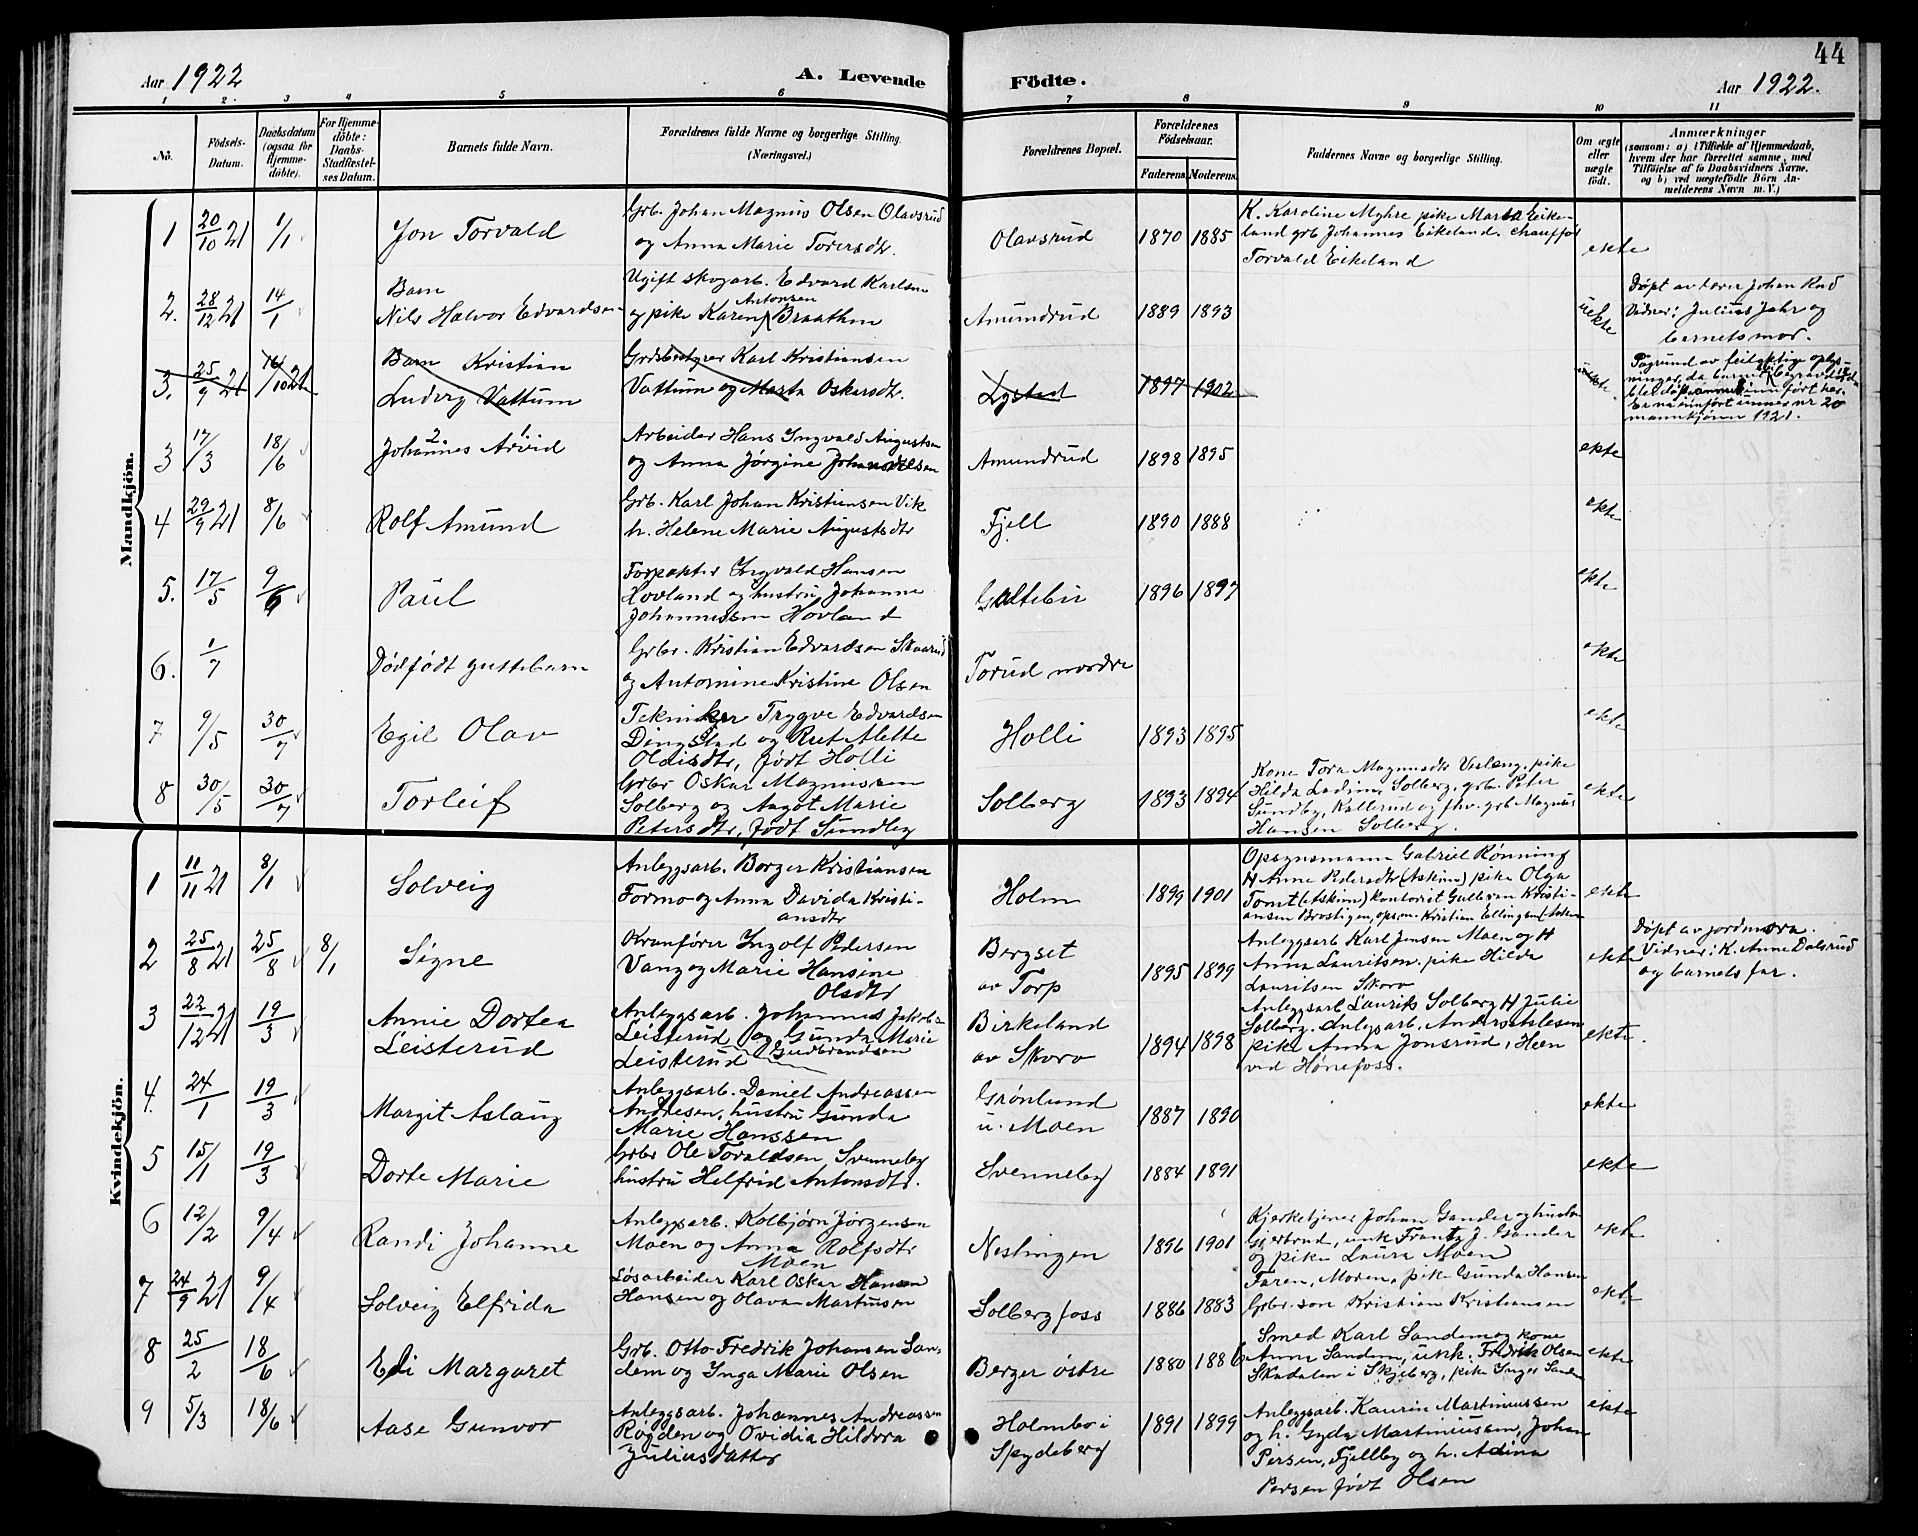 44
Aar 1922
A. Levende
Födte.
Aar 1922.
1 2 3 4 5 6 7 8 9 10 11
No.
Födsels-Datum.
Daabsdatum (ogsaa for Hjemme-döbte).
For Hjemme-döbte: Daabs-Stadfæstel-ses Datum.
Barnets fulde Navn.
Forældrenes fulde Navne og borgerlige Stilling.
(Næringsvei.)
Forældrenes Bopæl.
Forældrenes Födselsaar.
Faderens. Moderens.
Faddernes Navne og borgerlige Stilling.
Om ægte eller uægte födt.
Anmærkninger
(saasom: a) i Tilfælde af Hjemmedaab,
hvem der har forrettet samme, med
Tilföielse af to Daabsvidners Navne,
og b) ved uægtefödte Börn An-
melderens Navn m. V.)
Mandkjön.
1 20/10 21 1/1 Jon Torvald
Grb. Johan Magnus Olsen Olavsrud
og Anna Marie Torersdtr.
Olavsrud 1870 1885
K. Karoline Myhre pike Marta Eike-
land grb Johannes Eikeland. chauffør
Torvald Eikeland
ekte
2. 28/12 21 14/1 Barn
Nils Halvor Edvardsen
Ugift skogarb. Edvard Karlsen
og pike Karen Antonsen Braathen
Amundrud 1889 1893
uekte
Døpt av lærer Johan Rud
Vidner: Julius Jahr og
barnets mor.
3. 25/9 21 16/10 21 Barn Kristian
Ludvig Vattum
Grdsbestyrer Karl Kristiansen
Vattum og Marta Oskarsdtr.
Lystad 1897 1902
ekte.
Pågrund av feilaktige oplys-
ninger, da barnet
blev døpt innført her.
Er nu innført under nr 20
mannkjønn 1921.
3 17/3 18/6 Johannes 2 Arvid 1
Arbeider Hans Ingvald Augustsen
og Anna Jørgine Johansen
Amundrud 1898 1895
ekte
4 29/9 21 8/6 Rolf Amund
Grb. Karl Johan Kristiansen Vik
h. Helene Marie Augustsdtr
Fjell 1890 1888
ekte
5. 17/5 9/6 Paul
Forpakter Ingvald Hansen
Hovland og hustru Johanne
Johannessen Hovland
Galtebir 1896 1897
ekte
6. 1/7 Dødfødt guttebarn
Grbr. Kristian Edvardsen Skaarud
og Antonnine Kristine Olsen
Torud nordre
ekte
7 9/5 30/7 Egil Olav
Tekniker Trygve Edvardsen
Dingstad og Rut Alette
Oldisdtr, født Holli
Holli 1893 1895
ekte
8 30/5 30/7 Torleif
Grbr Oskar Magnussen
Solberg og Aagot Marie
Petersdtr, født Sundby
Solberg 1893 1894
Kone Tora Magnusdtr Veslong, pike
Hilda Ladim, Solberg, grb. Peter
Sundby, Kallerud og fhv. grb Magnus
Hansen Solberg.
ekte
Kvindekjön.
1 11/11 21 8/1 Solveig
Anleggsarb. Borger Kristiansen
Formo og Anna Davida Kristi-
ansdtr
Holm 1899 1901
Opsynsmann Gabriel Rønning
H Anne Pedersdtr (Askim) pike Olga
Tomt (Askim) kontorist Gulbran Kristi-
ansen Brostigen, opsm. Kristian Ellingsen
ekte
2 25/8 21 25/8 8/1 Signe
Kranfører Ingolf Pedersen
Vang og Marie Hansine
Olsdtr
Bergset
av Torp 1895 1899
Anleggsarb Karl Jensen Moen og H
Anna Lauritsen. pike Hilda
Lauritsen Skoro
ekte
Døpt av jordmora.
Vidner: K. Anne Dalsrud
og barnets far.
3 22/12 21 19/3 Annie Dortea
Leisterud
Anleggsarb. Johannes Jakobs-
Leisterud og Gunda Marie
Leisterud Gudbrandsen
Birkeland
av Skoro 1894 1898
Anleggsarb Laurits Solberg H Julie
Solberg. Anlegsarb. Andr. Aslesen
pike Anna Jonsrud, Heen
ved Hønefoss.
ekte.
4. 24/1 19/3 Margit Aslaug
Anleggsarb. Daniel Andreassen
Andresen, hustru Gunda
Marie Hanssen
Grønlund
u. Moen 1887 1890
ekte
5 15/1 19/3 Dorte Marie
Grbr Ole Toraldsen Svenneby
hustru Helfrid Antonsdtr.
Svenneby 1884 1891
ekte
6 12/2 9/4 Randi Johanne
Anlegsarb. Kolbjørn Jørgensen
Moen og Anna Rolfsdtr
Moen
Neslingen 1896 1901
Kjerketjener Johan Gander og hustru
Gjertrud, unk Frantz J. Gander
og pike Laura Moen
ekte
7 24/9 21 9/4 Solveig Elfrida
Løsarbeider Karl Oskar Hansen
Hansen og Olava Martinsen
Solbergfoss 1886 1883
Faren, Moren, pike Gunda Hansen
Grbr. søn Kristian Kristiansen
ekte
8 25/2 18/6 Edi Margaret
Grb. Otto Fredrik Johansen San-
dem og Inga Marie Olsen
Berger østre 1880 1886
Smed Karl Sandem og kone
Anna Sandem, unk. Fredrik Olsen
Skadalen i Skjeberg, pike Inger Sandem
ekte
9 5/3 18/6 Aase Gunvor
Anleggsarb. Johannes Andreassen
Rogden og Ovidia Hildora
Juliusdatter
Holmbo i
Spydeberg 1891 1899
Anleggsarb. Laurin Martiniussen
og h. Gyda Martiniussen, Johan
Persen, Fjellby og h. Adina
Persen født Olsen
ekte